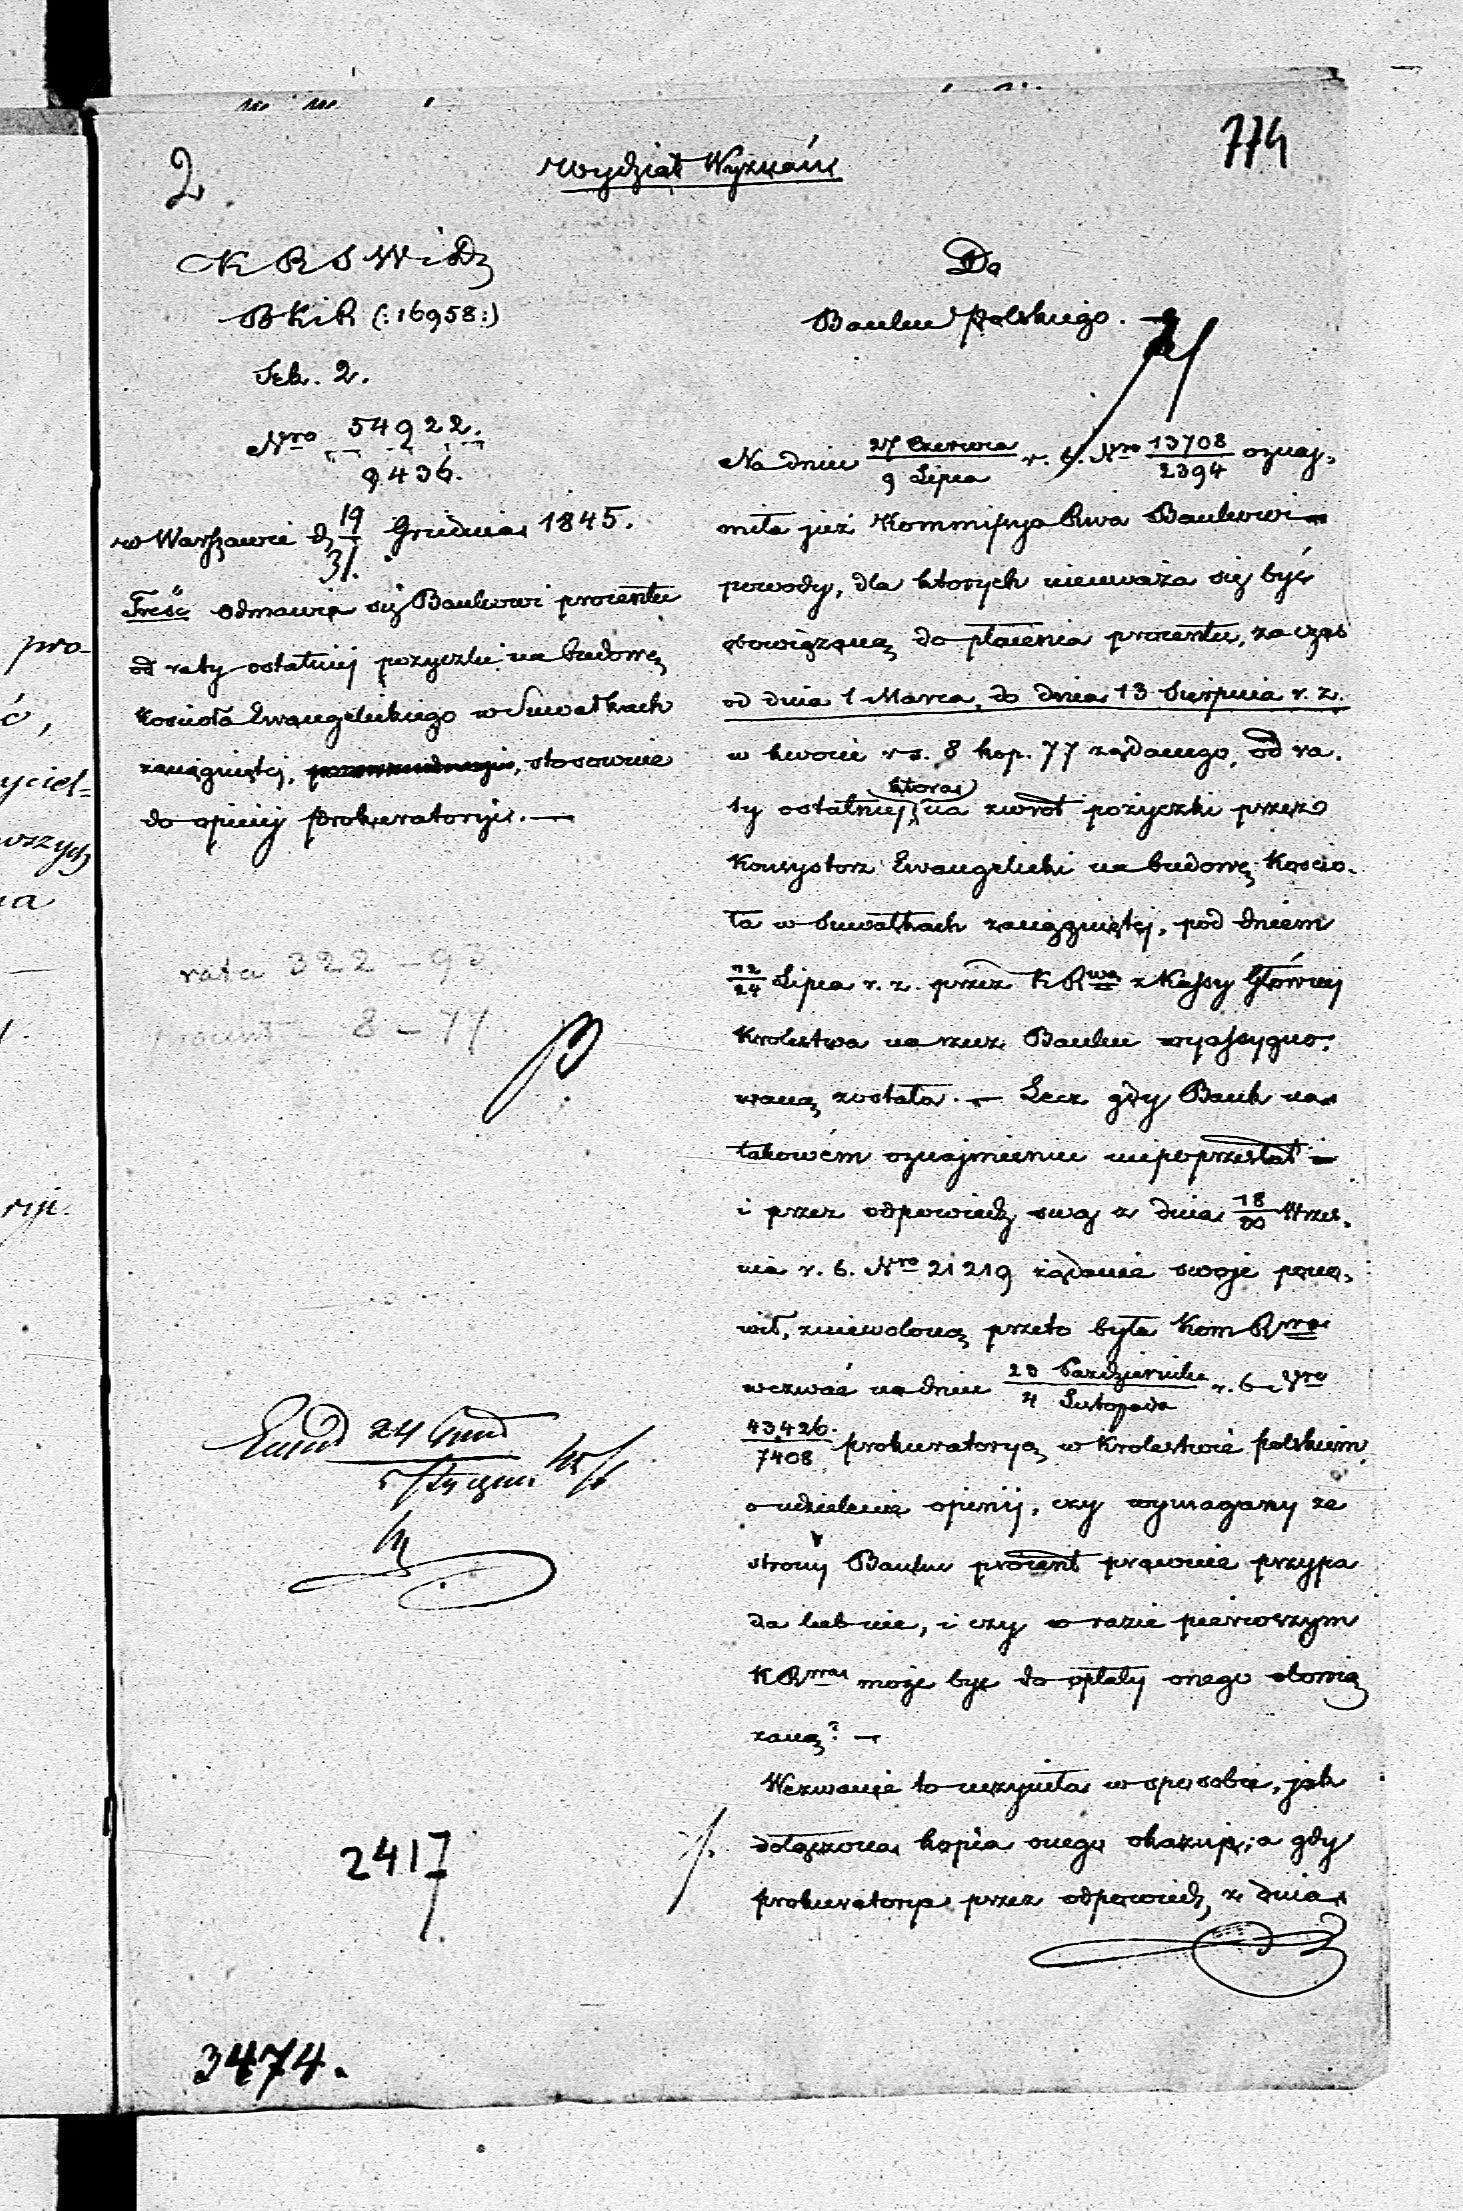 774
2
Wydział Wyznań
K R S W i D
B K i R (:16958:)
Sek. 2.
Nro 54922.
9436.
w Warszawie d 19/31. Grudnia 1845.
Treść odmawia się Bankowi procentu
od raty ostatniej pożyczki na budowę
Kościoła Ewangelickiego w Suwałkach
zaciągniętej, stosownie
do opinij Prokuratoryi. —
rata 322 – 93
procent – 8 – 77
24 Grud
5 Stycznia 45/6
2417
3474.
Do
Banku Polskiego.
Na dniu 27 Czerwca/9 Lipca r. b. Nro 13708/2394 oznaj-
miła już Kommissya Rwa Bankowi
powody, dla ktorych nieuważa się być
obowiązaną do płacenia procentu, za czas
od dnia 1 Marca do dnia 13 Sierpnia r. z.
w kwocie rs. 8 kop. 77 żądanego, od ra-
ty ostatniej, która na zwrot pożyczki przez
Konsystorz Ewangelicki na budowę Kościo-
ła w Suwałkach zaciągniętej, pod dniem
12/24 Lipca r. z. przez K Rwą z Kassy Głównej
Krolestwa na rzecz Banku wyassygno-
waną została. — Lecz gdy Bank na
takowém oznajmieniu niepoprzestał
i przez odpowiedź swą z dnia 18/30 Wrześ-
nia r. b. Nro 21219 żądanie swoje pono-
wił, zniewoloną przeto była Kom Rwa
wezwać na dniu 23 Października/4 Listopada r. b. Nro
43,426./7408 prokuratoryą w Krolestwie polskiem
o udzielenie opinij, czy wymagany ze
strony Banku procent prawnie przypa
da lub nie, i czy w razie pierwszym
K Rwa może być do opłaty onego obowią
zaną? —
Wezwanie to uczyniła w sposobie, jak
dołączona kopia onego okazuje; a gdy
prokuratorya przez odpowiedź z dnia
pro-
ć,
yciel=
wszych
ia
ryi.